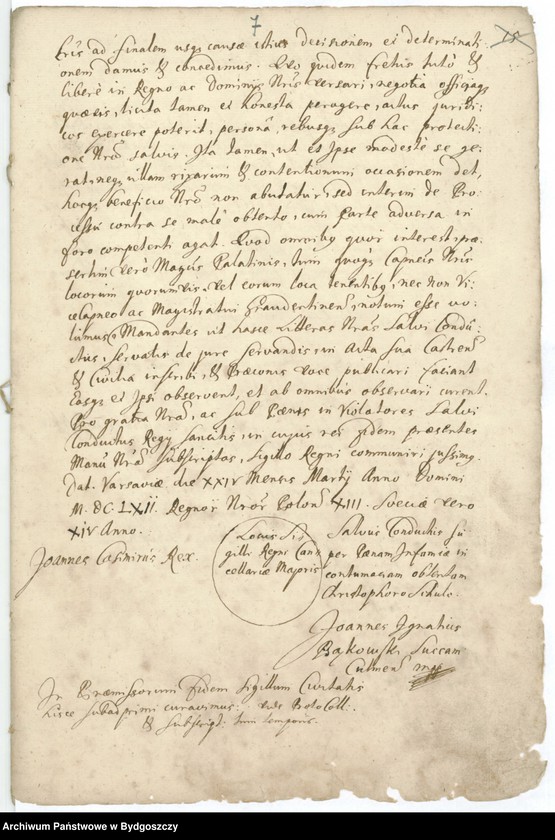 7
Eris ad finalem usq causae istius decisionem et determinati-
onem damus & concedimus. Quo quidem fretus tuto &
libere in Regno ac Dominijs Nris versari, negotia officiaq
quaevis, licita tamen et honesta peragere, actus juridi-
cos exercere poterit, persona, rebusq sub hac protecti-
one Nra salvis. Ita tamen, ut et Ipse modeste se ge-
rat, neq ullam rixarum & contentionum occasionem det,
hocq beneficio Nro non abutatur, sed interim de Pro-
cessu contra se male obtento, cum Parte adversa in
foro competenti agat. Quod omnibq quor interest, prae-
sertim vero Magcis Palatinis, tum quoq Capneis Nris
locorum quorumvis, vel eorum loca tenentibq, nec non Vi-
cecapneo ac Magistratui Graudentinen, notum esse vo-
lumus, Mandantes ut hasce Litteras Nras Salvi Condu-
ctus, servatis de jure servandis, in Acta sua Castren
& Civilia inscribi, & Praeconis voce publicari faciant
Easq et Ipsi observent, et ab omnibus observari curent.
Pro gratia Nra, ac sub Poenis in Violatores Salvi
Conductus Regij sancitis, in cujus rei fidem praesentes
Manu Nra subscriptas, Sigillo Regni communiri jussimq.
Dat. Varsaviae die XXIV Mensis Martij Anno Domini
M. DC. LXII. Regnor Nror Polon XIII. Sveciae vero
XIV Anno.
Joannes Casimirus Rex.
Locus Si-
gilli Regni Can-
cellariae Majoris
Salvus Conductus su-
per Poenam Infamiae in
contumaciam obtentam
Christophoro
Joannes Ignatius
Bąkowski Succam
Culmen mpp
In Praemissorum fidem Sigillum Civitatis
hisce subadprimi curavimus.
& subscript: tum temporis.
Archiwum Państwowe w Bydgoszczy